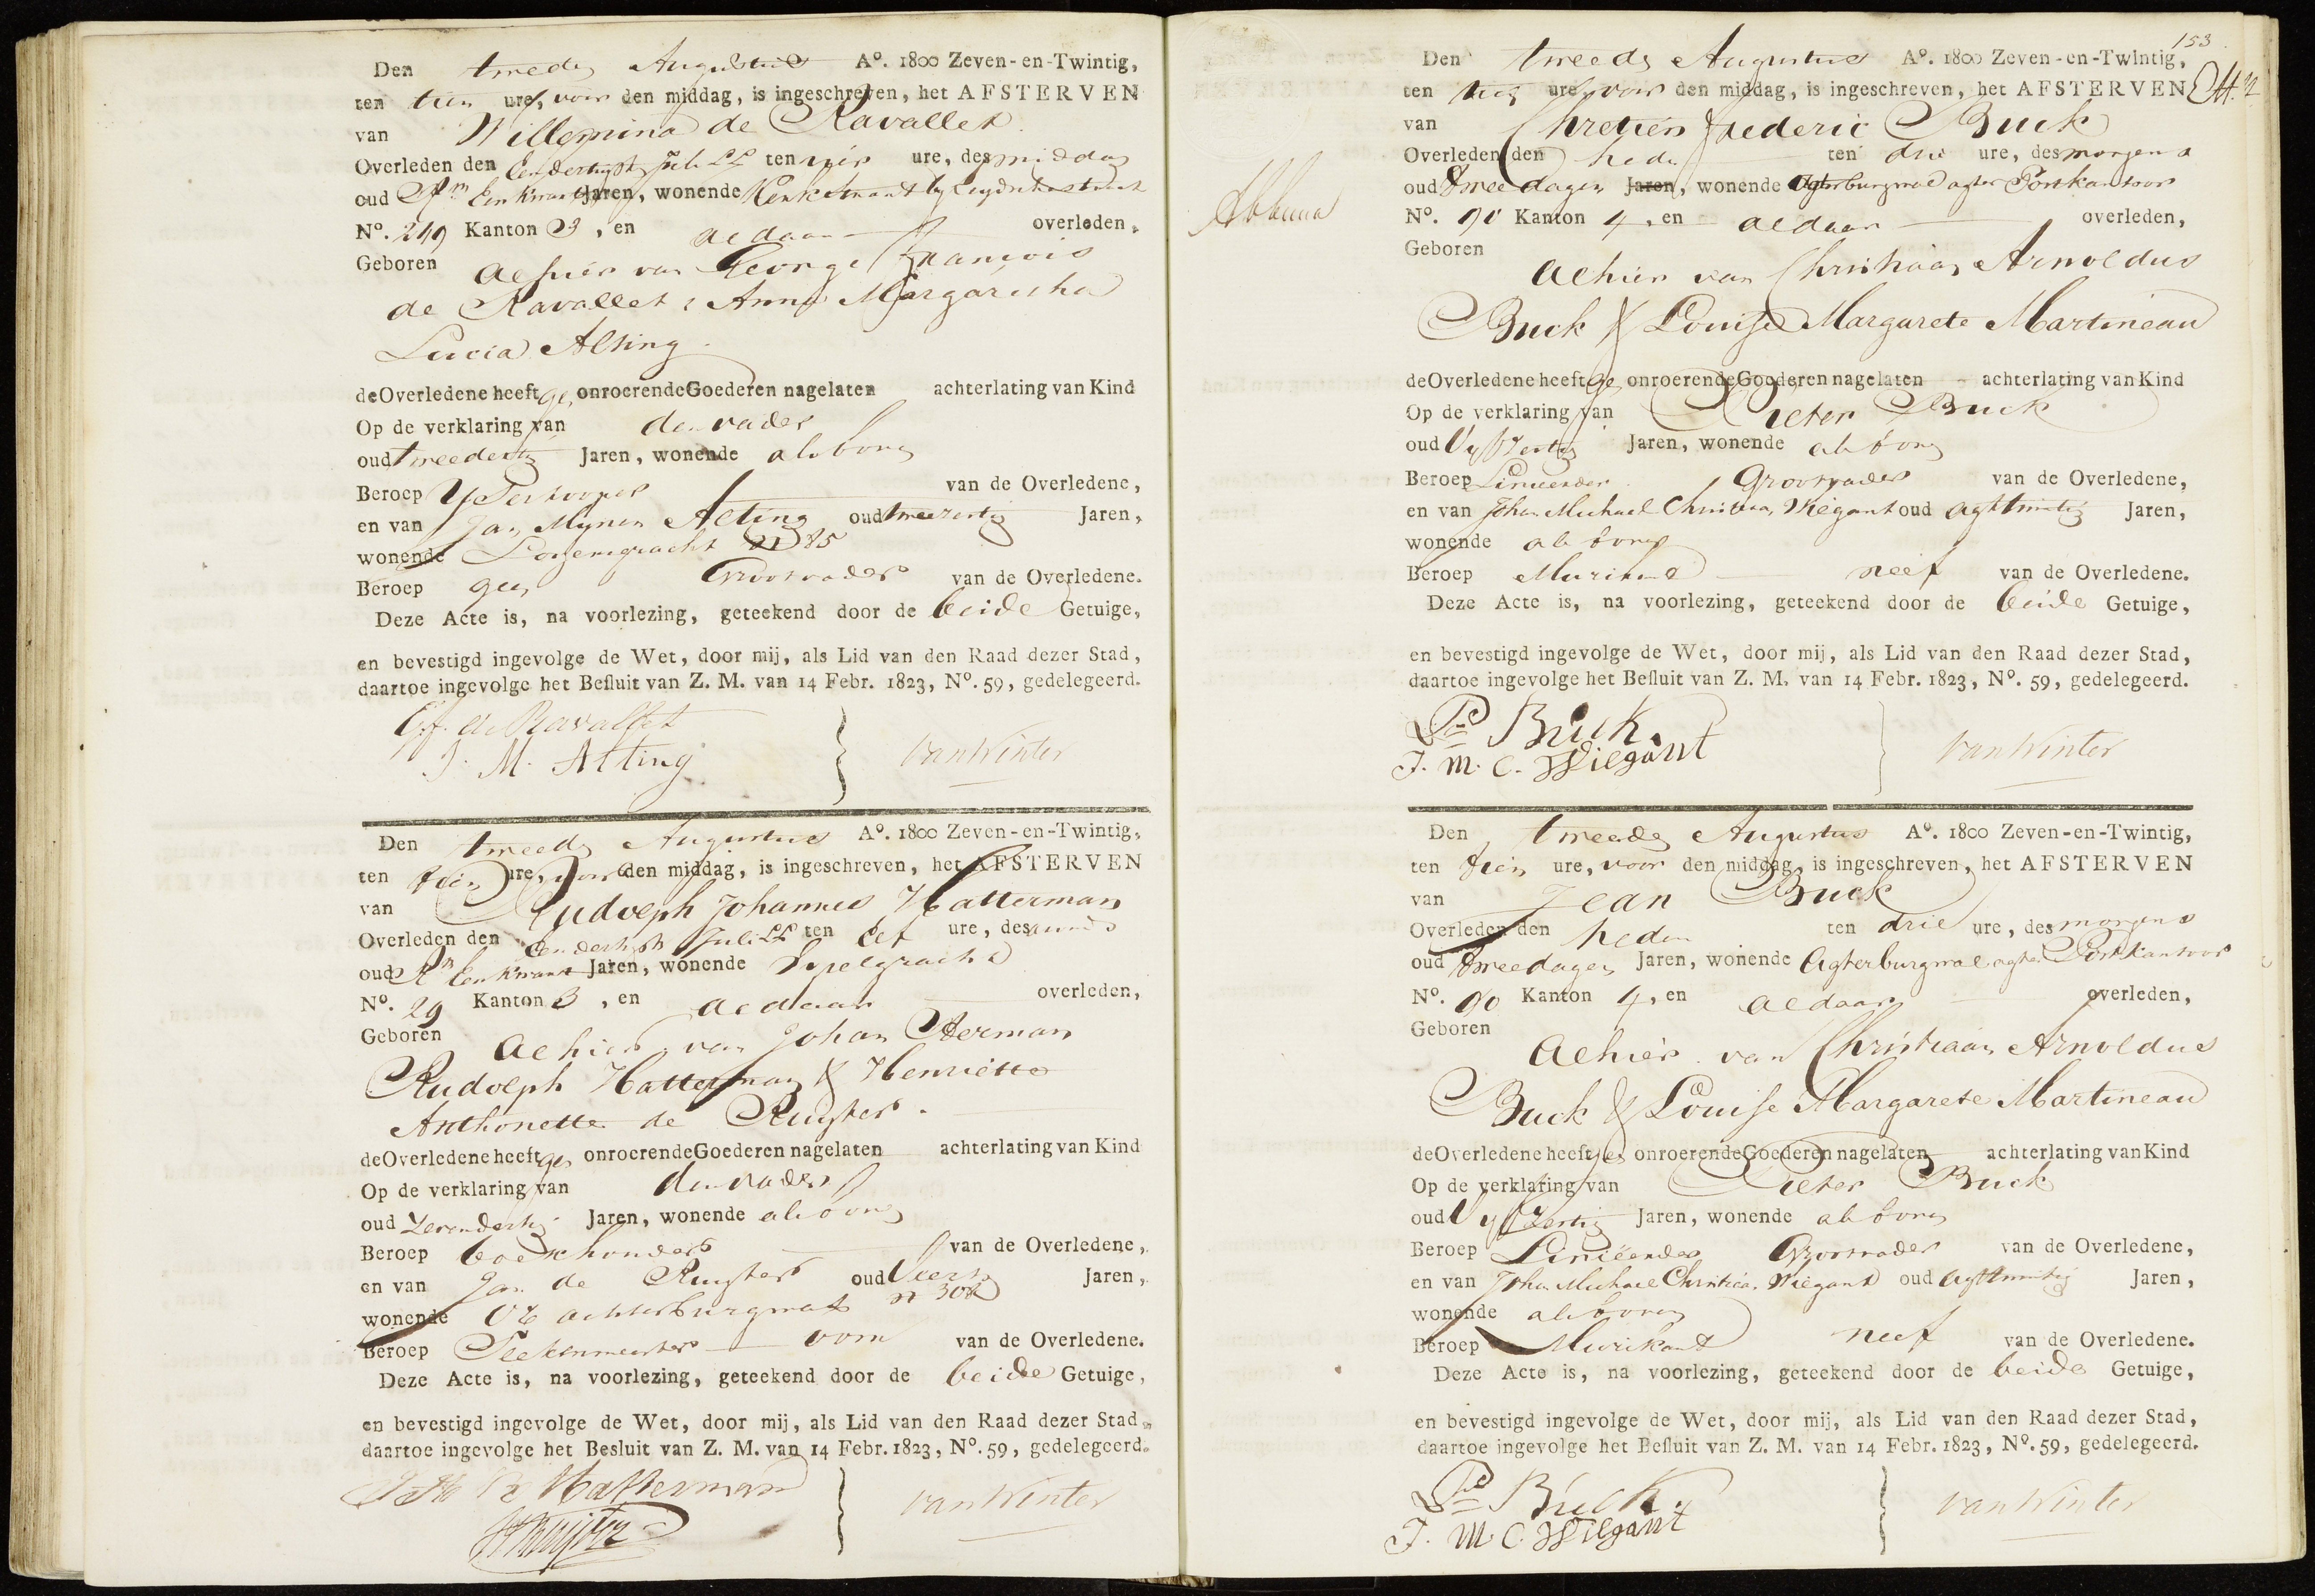 Den tweede Augustus Aº. 1800 Zeven-en-Twintig,
ten tien ure, voor den middag, is ingeschreven, het AFSTERVEN
van Willemina de Ravallet
Overleden den Een dertigst Juli LL ten vier ure, des middag
oud Rm Een Kwart Jaren, wonende Kerkstraat by Leydschestraat
Nº. 249 Kanton 3, en aldaar overleden,
Geboren alhier van George François
de Ravallet & Anna Margaretha
Lucia Alting
de Overledene heeft geen onroerende Goederen nagelaten achterlating van Kind
Op de verklaring van den vader
oud tweedertig Jaren, wonende als boven
Beroep van de Overledene,
en van Jan Mynen Alting oud tweezestig Jaren,
wonende Lo gracht n 85
Beroep geen Grootvader van de Overledene.
Deze Acte is, na voorlezing, geteekend door de beide Getuige,
en bevestigd ingevolge de Wet, door mij, als Lid van den Raad dezer Stad,
daartoe ingevolge het Besluit van Z. M. van 14 Febr. 1823, Nº. 59, gedelegeerd.
G.f. de Ravallet
J. M. Alting
van Winter
Den tweede Augustus Aº. 1800 Zeven-en-Twintig,
ten tien ure, voor den middag, is ingeschreven, het AFSTERVEN
van Rudolph Johannes Hatterman
Overleden den Een dertigst Juli LL ten elf ure, des avonds
oud Rm Een Kwart Jaren, wonende Egelgracht
Nº. 29 Kanton 3, en aldaar overleden,
Geboren alhier van Johan Herman
Rudolph Hatterman & Henriëtte
Anthonette de Ruyter
de Overledene heeft geen onroerende Goederen nagelaten achterlating van Kind
Op de verklaring van den vader
oud Zevendertig Jaren, wonende als boven
Beroep boekhouder van de Overledene,
en van Jan de Ruyter oud Veertig Jaren,
wonende OZ achterburgwal n 308
Beroep Teekenmeester oom van de Overledene.
Deze Acte is, na voorlezing, geteekend door de beide Getuige,
en bevestigd ingevolge de Wet, door mij, als Lid van den Raad dezer Stad,
daartoe ingevolge het Besluit van Z. M. van 14 Febr. 1823, Nº. 59, gedelegeerd.
Hatterman
van Winter
153
Den tweede Augustus Aº. 1800 Zeven-en-Twintig,
ten tien ure, voor den middag, is ingeschreven, het AFSTERVEN
van Chretien frederic Buck
Overleden den heden ten drie ure, des morgens
oud twee dagen Jaren, wonende Agterburgwal agter Postkantoor
Nº. 90 Kanton 4, en aldaar overleden,
Geboren
alhier van Christiaan Arnoldus
Buck & Louise Margarete Martineau
de Overledene heeft geen onroerende Goederen nagelaten achterlating van Kind
Op de verklaring van Pieter Buck
oud Vyfzestig Jaren, wonende als boven
Beroep Liniëerder Grootvader van de Overledene,
en van Johan Michael Christiaan Wiegant oud agttwintig Jaren,
wonende als boven
Beroep Muzikant neef van de Overledene.
Deze Acte is, na voorlezing, geteekend door de beide Getuige,
en bevestigd ingevolge de Wet, door mij, als Lid van den Raad dezer Stad,
daartoe ingevolge het Besluit van Z. M. van 14 Febr. 1823, Nº. 59, gedelegeerd.
P Buck.
J. M. C. Wiegant
van Winter
Den tweede Augustus Aº. 1800 Zeven-en-Twintig,
ten tien ure, voor den middag, is ingeschreven, het AFSTERVEN
van Jean Buck
Overleden den heden ten drie ure, des morgens
oud twee dagen Jaren, wonende Agterburgwal agter Postkantoor
Nº. 90 Kanton 4, en aldaar overleden,
Geboren
alhier van Christiaan Arnoldus
Buck & Louise Margarete Martineau
de Overledene heeft geen onroerende Goederen nagelaten achterlating van Kind
Op de verklaring van Pieter Buck
oud Vyfzestig Jaren, wonende als boven
Beroep Liniëerder Grootvader van de Overledene,
en van Johan Michael Christiaan Wiegant oud agttwintig Jaren,
wonende als boven
Beroep Muzikant neef van de Overledene.
Deze Acte is, na voorlezing, geteekend door de beide Getuige,
en bevestigd ingevolge de Wet, door mij, als Lid van den Raad dezer Stad,
daartoe ingevolge het Besluit van Z. M. van 14 Febr. 1823, Nº. 59, gedelegeerd.
P Buck.
J. M. C. Wiegant
van Winter